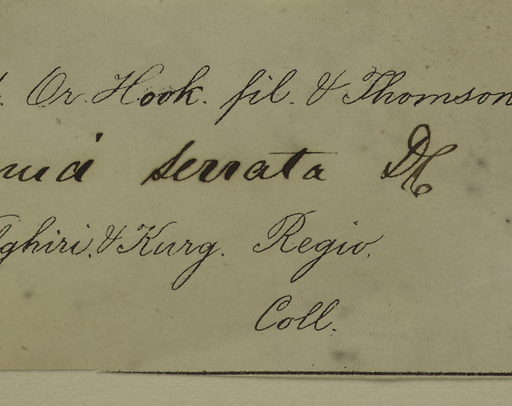 Or. Hook. fil. & Thomson
serrata DC
ghiri. & Kurg. Regio.
Coll.